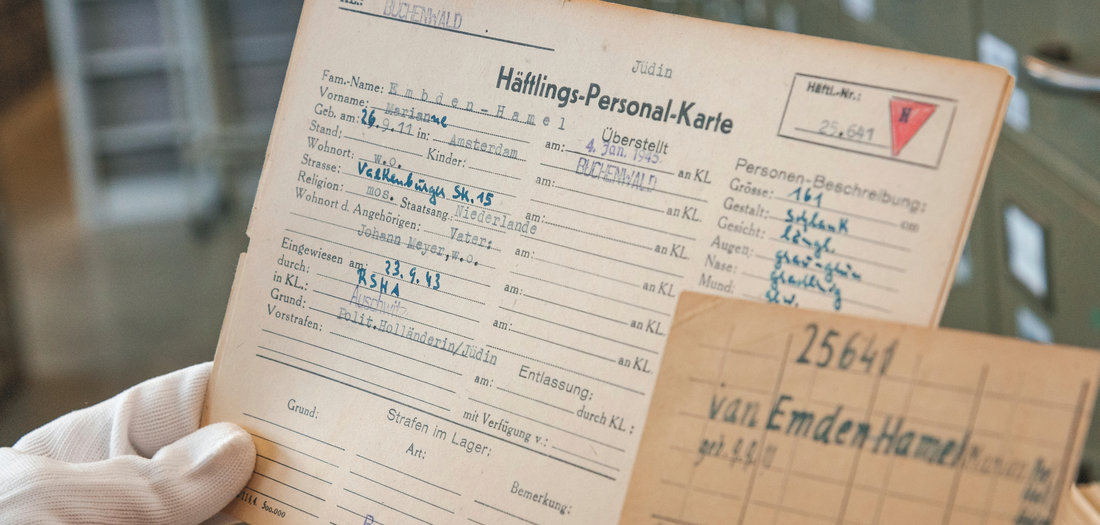 KL.: BUCHENWALD
Jüdin
Häftlings-Personal-Karte
Häftl.-Nr.:
25.641
N
Fam.-Name: Embden-Hamel
Vorname: Marianne
Geb. am: 26.9.11 in: Amsterdam
Stand: Kinder:
Wohnort: w.o.
Strasse: Valkenburger Str. 15
Religion: mos. Staatsang. Niederlande
Wohnort d. Angehörigen: Vater:
Johann Meyer, w.o.
Eingewiesen am: 23.9.43
durch: RSHA
in KL.: Auschwitz
Grund: Polit. Holländerin/Jüdin
Vorstrafen:
Überstellt
am: 4. Jan. 1945 an KL.
BUCHENWALD
am: an KL.
am: an KL.
am: an KL.
am: an KL.
am: an KL.
Entlassung:
am: durch KL.:
mit Verfügung v.:
Personen-Beschreibung:
Grösse: 161 cm
Gestalt: schlank
Gesicht: längl.
Augen: graugrün
Nase: gradlinig
Mund:
Strafen im Lager:
Grund: Art: Bemerkung:
500.000
25641
van Emden-Hamel
geb.